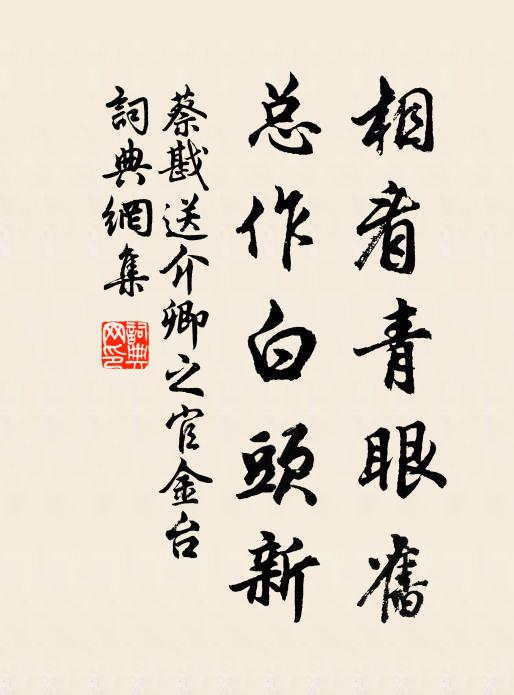 相看青眼舊
总作白頭新
蔡戡送介卿之官金台
詞典網集
詞典網印